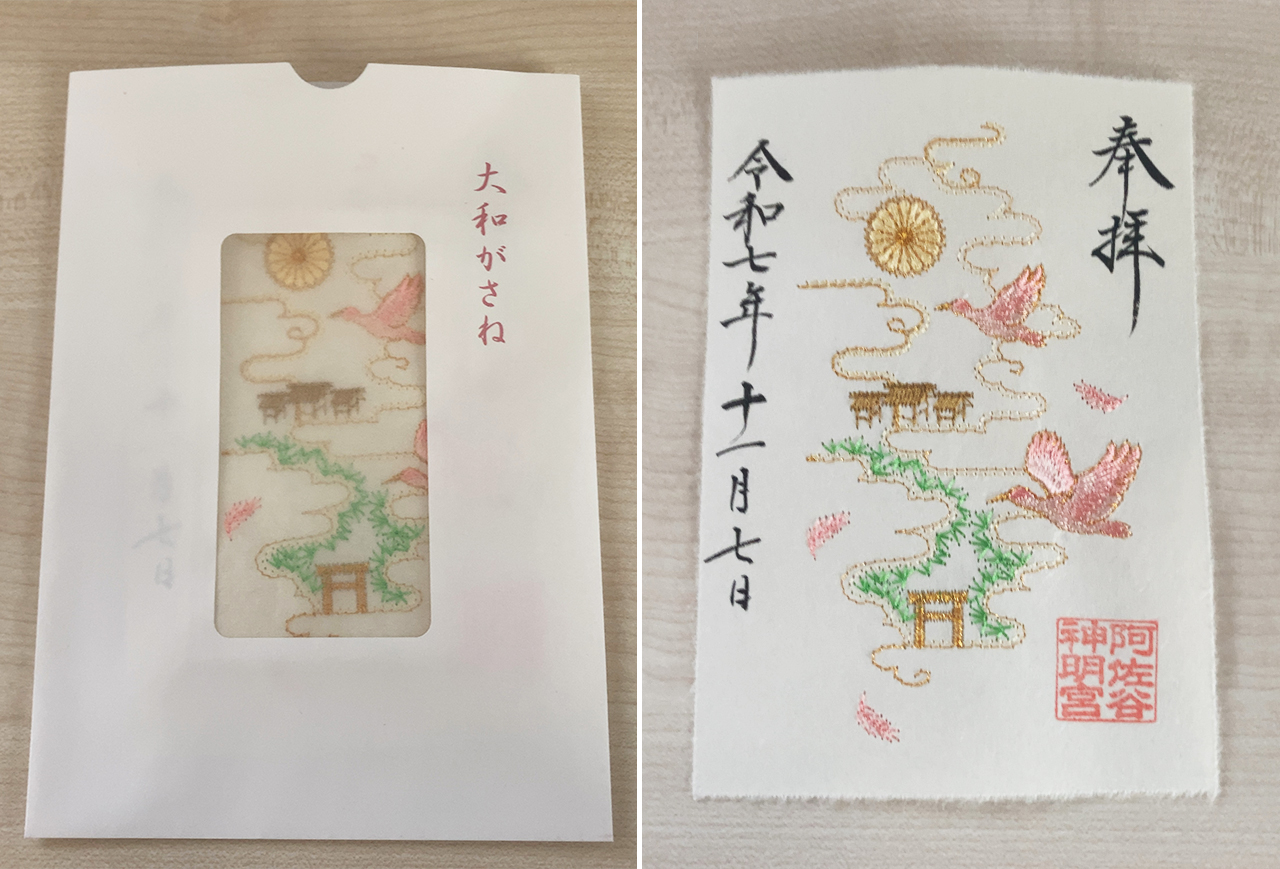 大和がさね
奉拝
令和七年十一月七日
阿佐谷
神明宮